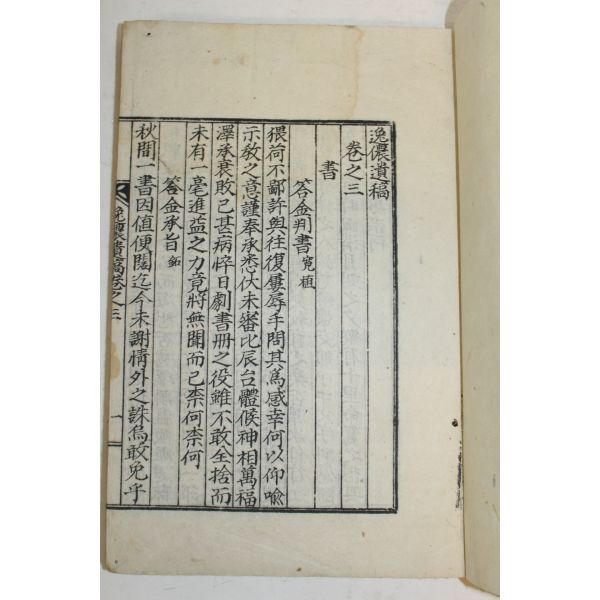 逸儂遺稿
卷之三
書
答金判書 寬植
猥荷不鄙許與往復屢辱手問其爲感幸何以仰喩
示敎之意謹奉承悉伏未審比辰台體候神相萬福
澤承衰敗已甚病悴日劇書冊之役雖不敢全捨而
未有一毫進益之力竟將無聞而已柰何柰何
答金承旨 鉐
秋間一書因値便闊迄今未謝情外之誅烏敢免乎
逸儂遺稿卷之三
一